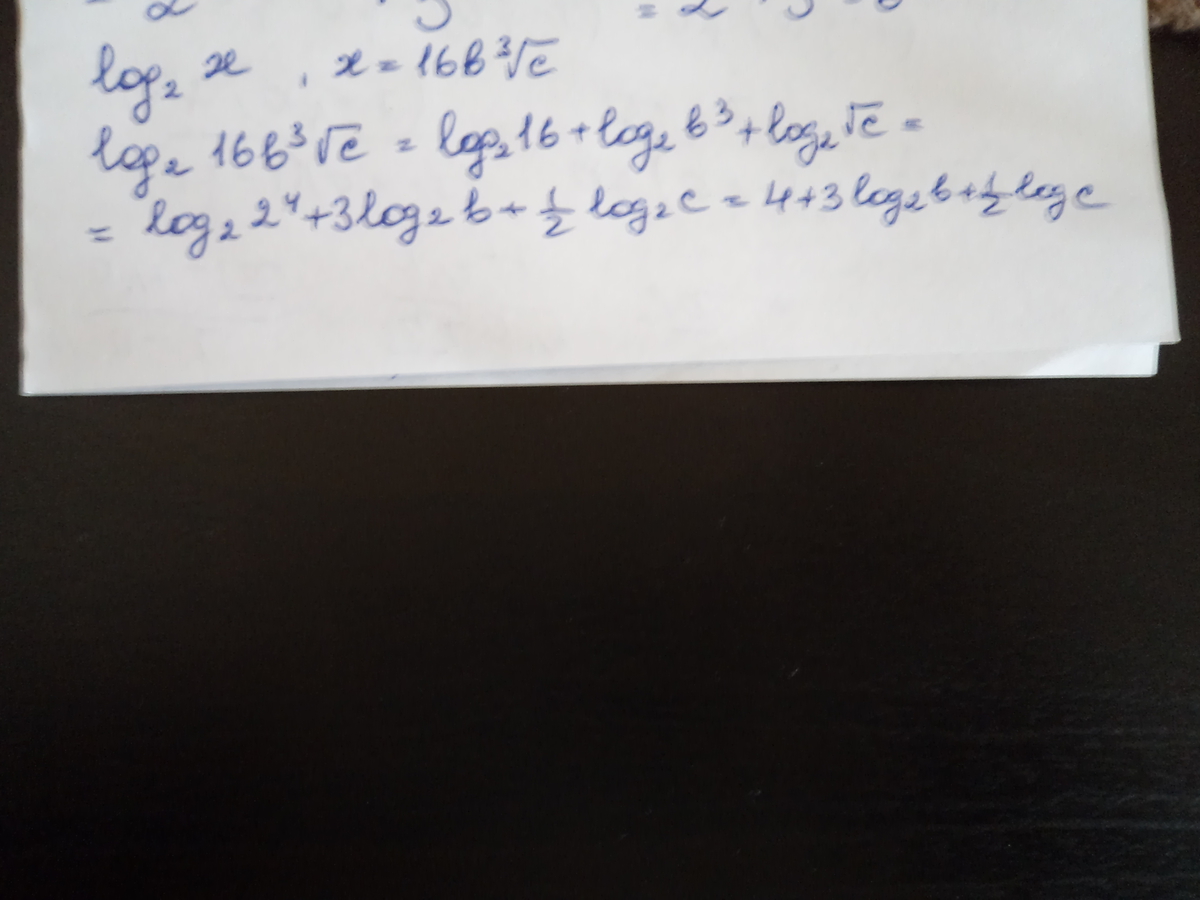 log₂ x , x = 16b³√c
log₂ 16b³√c = log₂16 + log₂b³ + log₂√c =
= log₂2⁴ + 3log₂b + 1/2 log₂c = 4 + 3log₂b + 1/2 log c